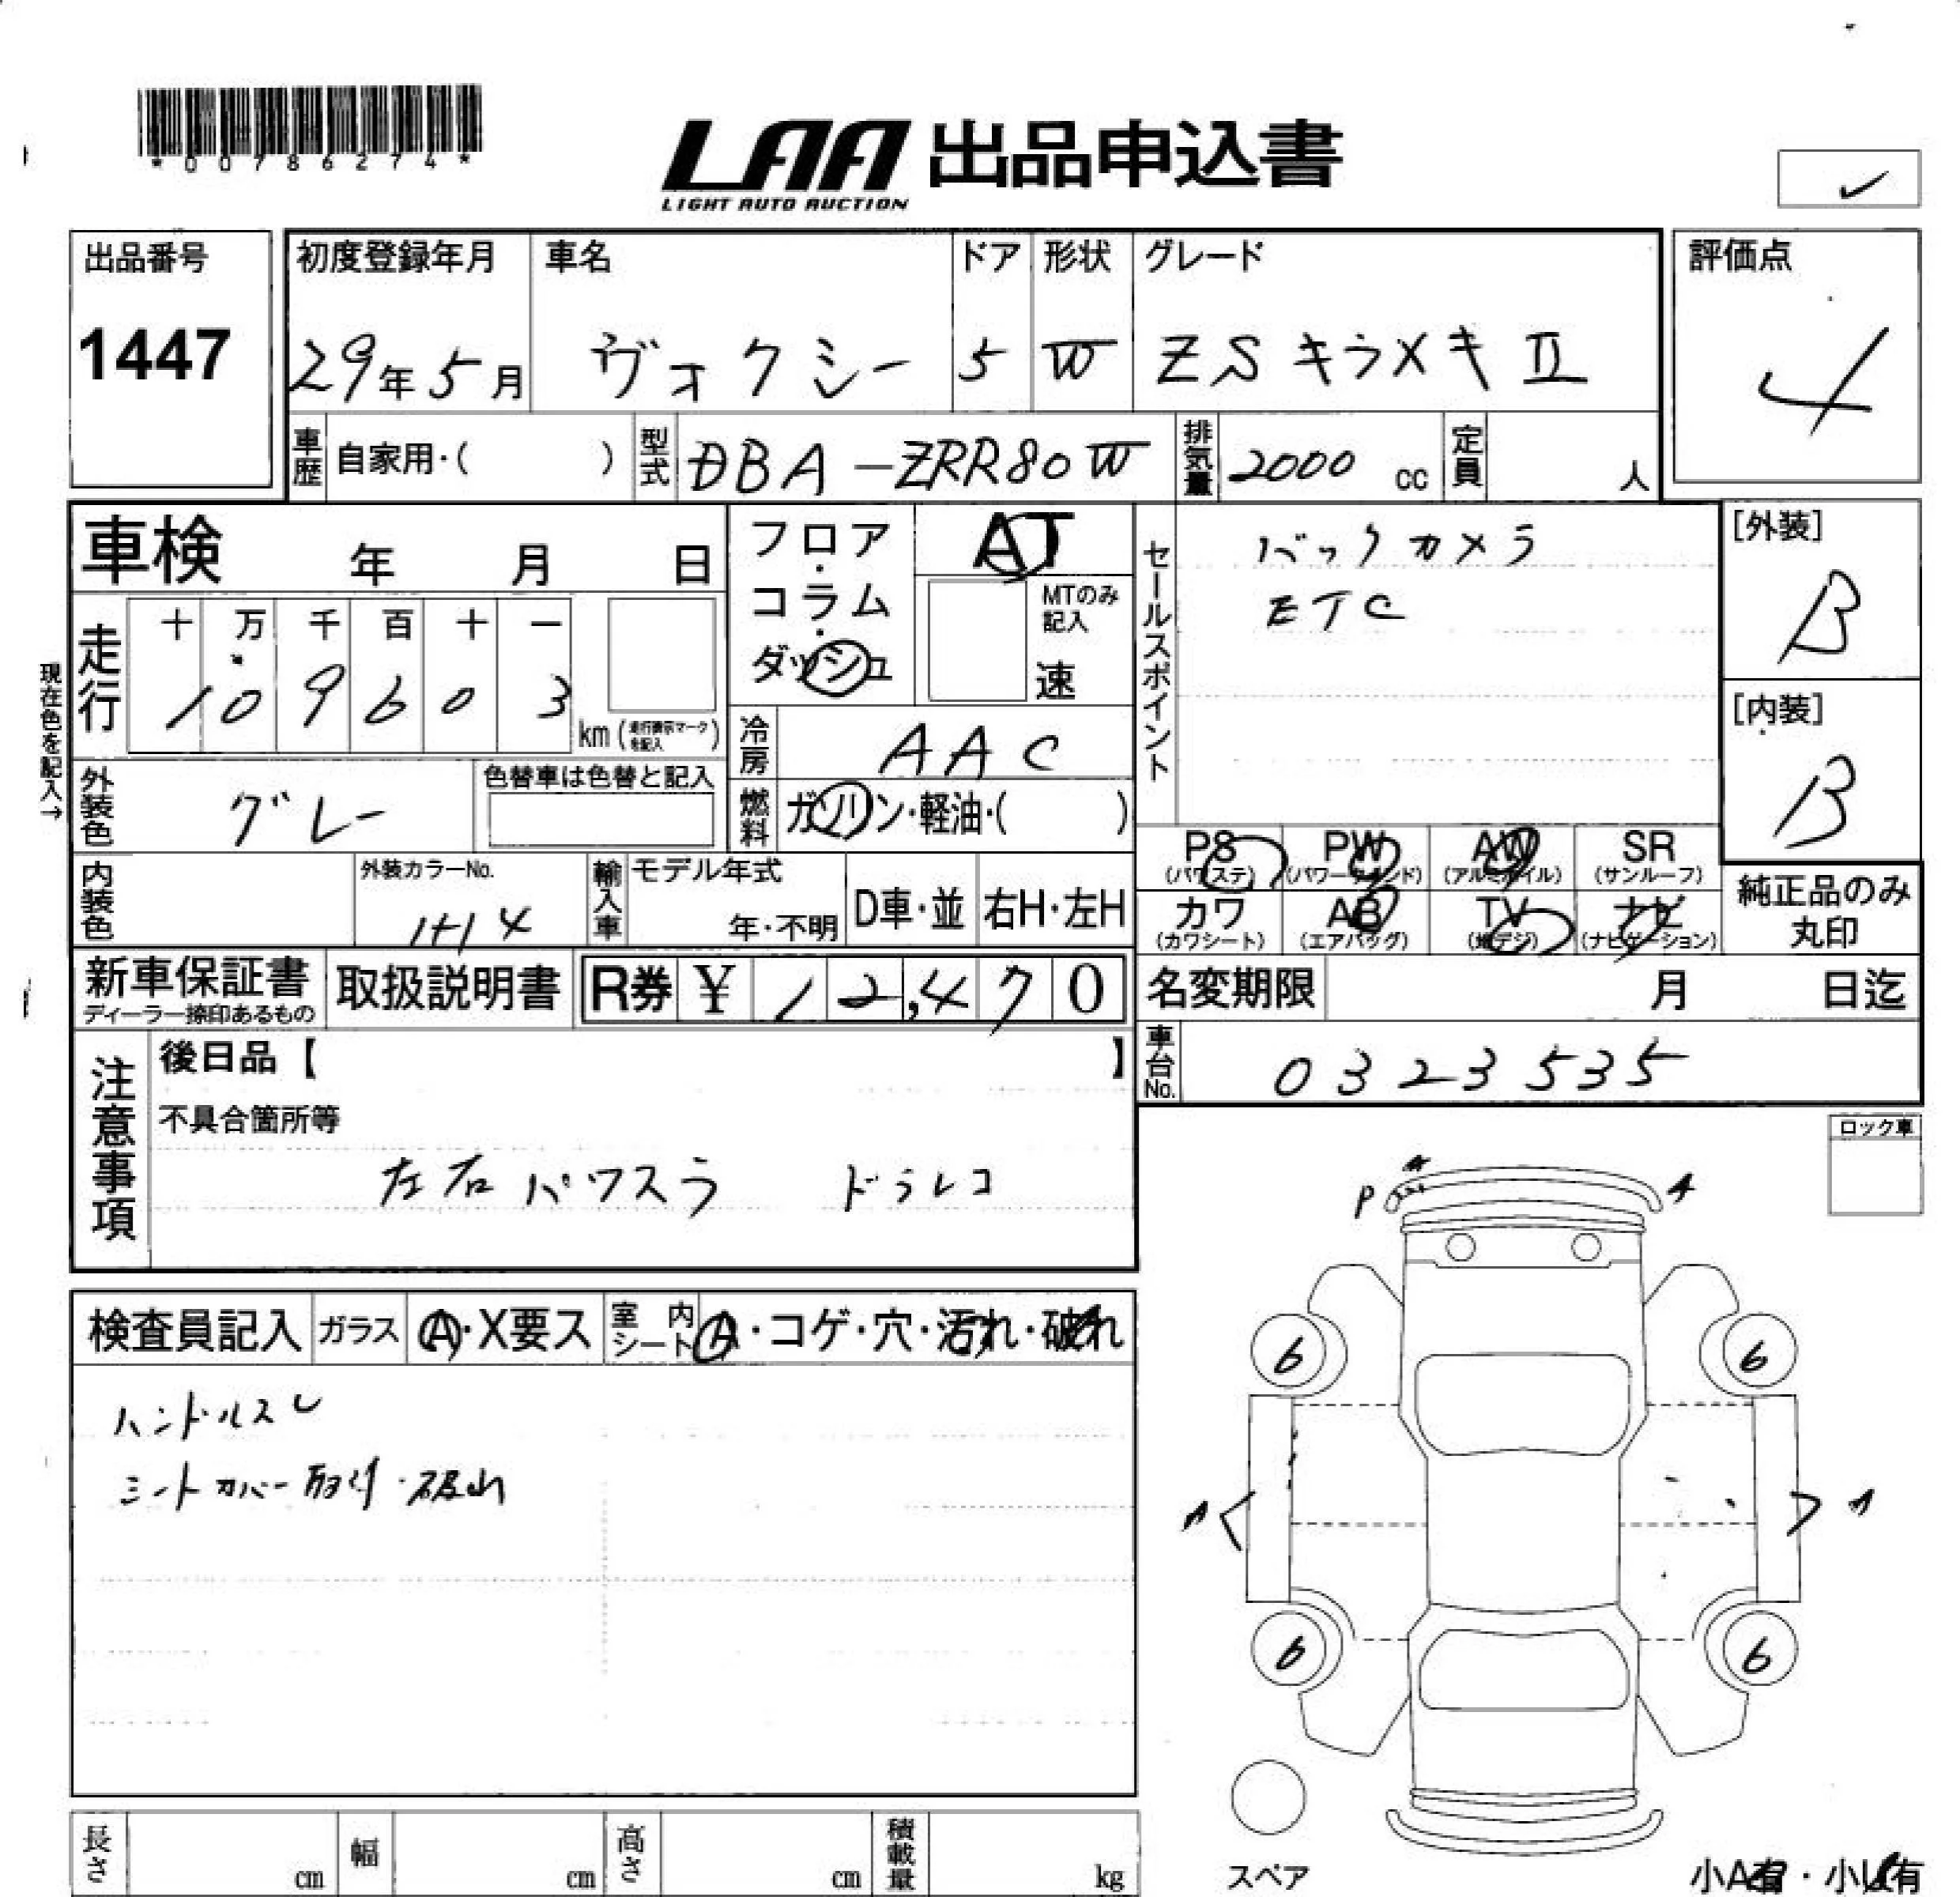 *00786274*
LAA 出品申込書
LIGHT AUTO AUCTION
出品番号
1447
初度登録年月
29年5月
車名
ヴォクシー
ドア
5
形状
W
グレード
ZSキラメキⅡ
評価点
4
車歴
自家用・( )
型式
DBA-ZRR80W
排気量
2000 cc
定員
人
車検 年 月 日
フロア・コラム・ダッシュ
AT
MTのみ記入
速
セールスポイント
バックカメラ
ETC
[外装]
B
[内装]
B
現在色を記入→
走行
十 万 千 百 十 一
1 0 9 6 0 3
km (走行表示マークを記入)
冷房
AAC
外装色
グレー
色替車は色替と記入
燃料
ガソリン・軽油・( )
PS (パワステ)
PW (パワーウインド)
AW (アルミホイル)
SR (サンルーフ)
カワ (カワシート)
AB (エアバッグ)
TV (地デジ)
ナビ (ナビゲーション)
純正品のみ
丸印
内装色
外装カラーNo.
1H4
輸入車
モデル年式
年・不明
D車・並
右H・左H
新車保証書
ディーラー捺印あるもの
取扱説明書
R券 ¥ 12,470
名変期限 月 日迄
車台No.
0323535
注意事項
後日品【 】
不具合箇所等
左右パワスラ ドラレコ
ロック車
P A A
検査員記入
ガラス
A・X要ス
室内シート
A・コゲ・穴・汚れ・破れ
ハンドルスレ
シートカバー取付・破れ
6 6
A A
6 6
長さ cm
幅 cm
高さ cm
積載量 kg
スペア
小A有・小U有